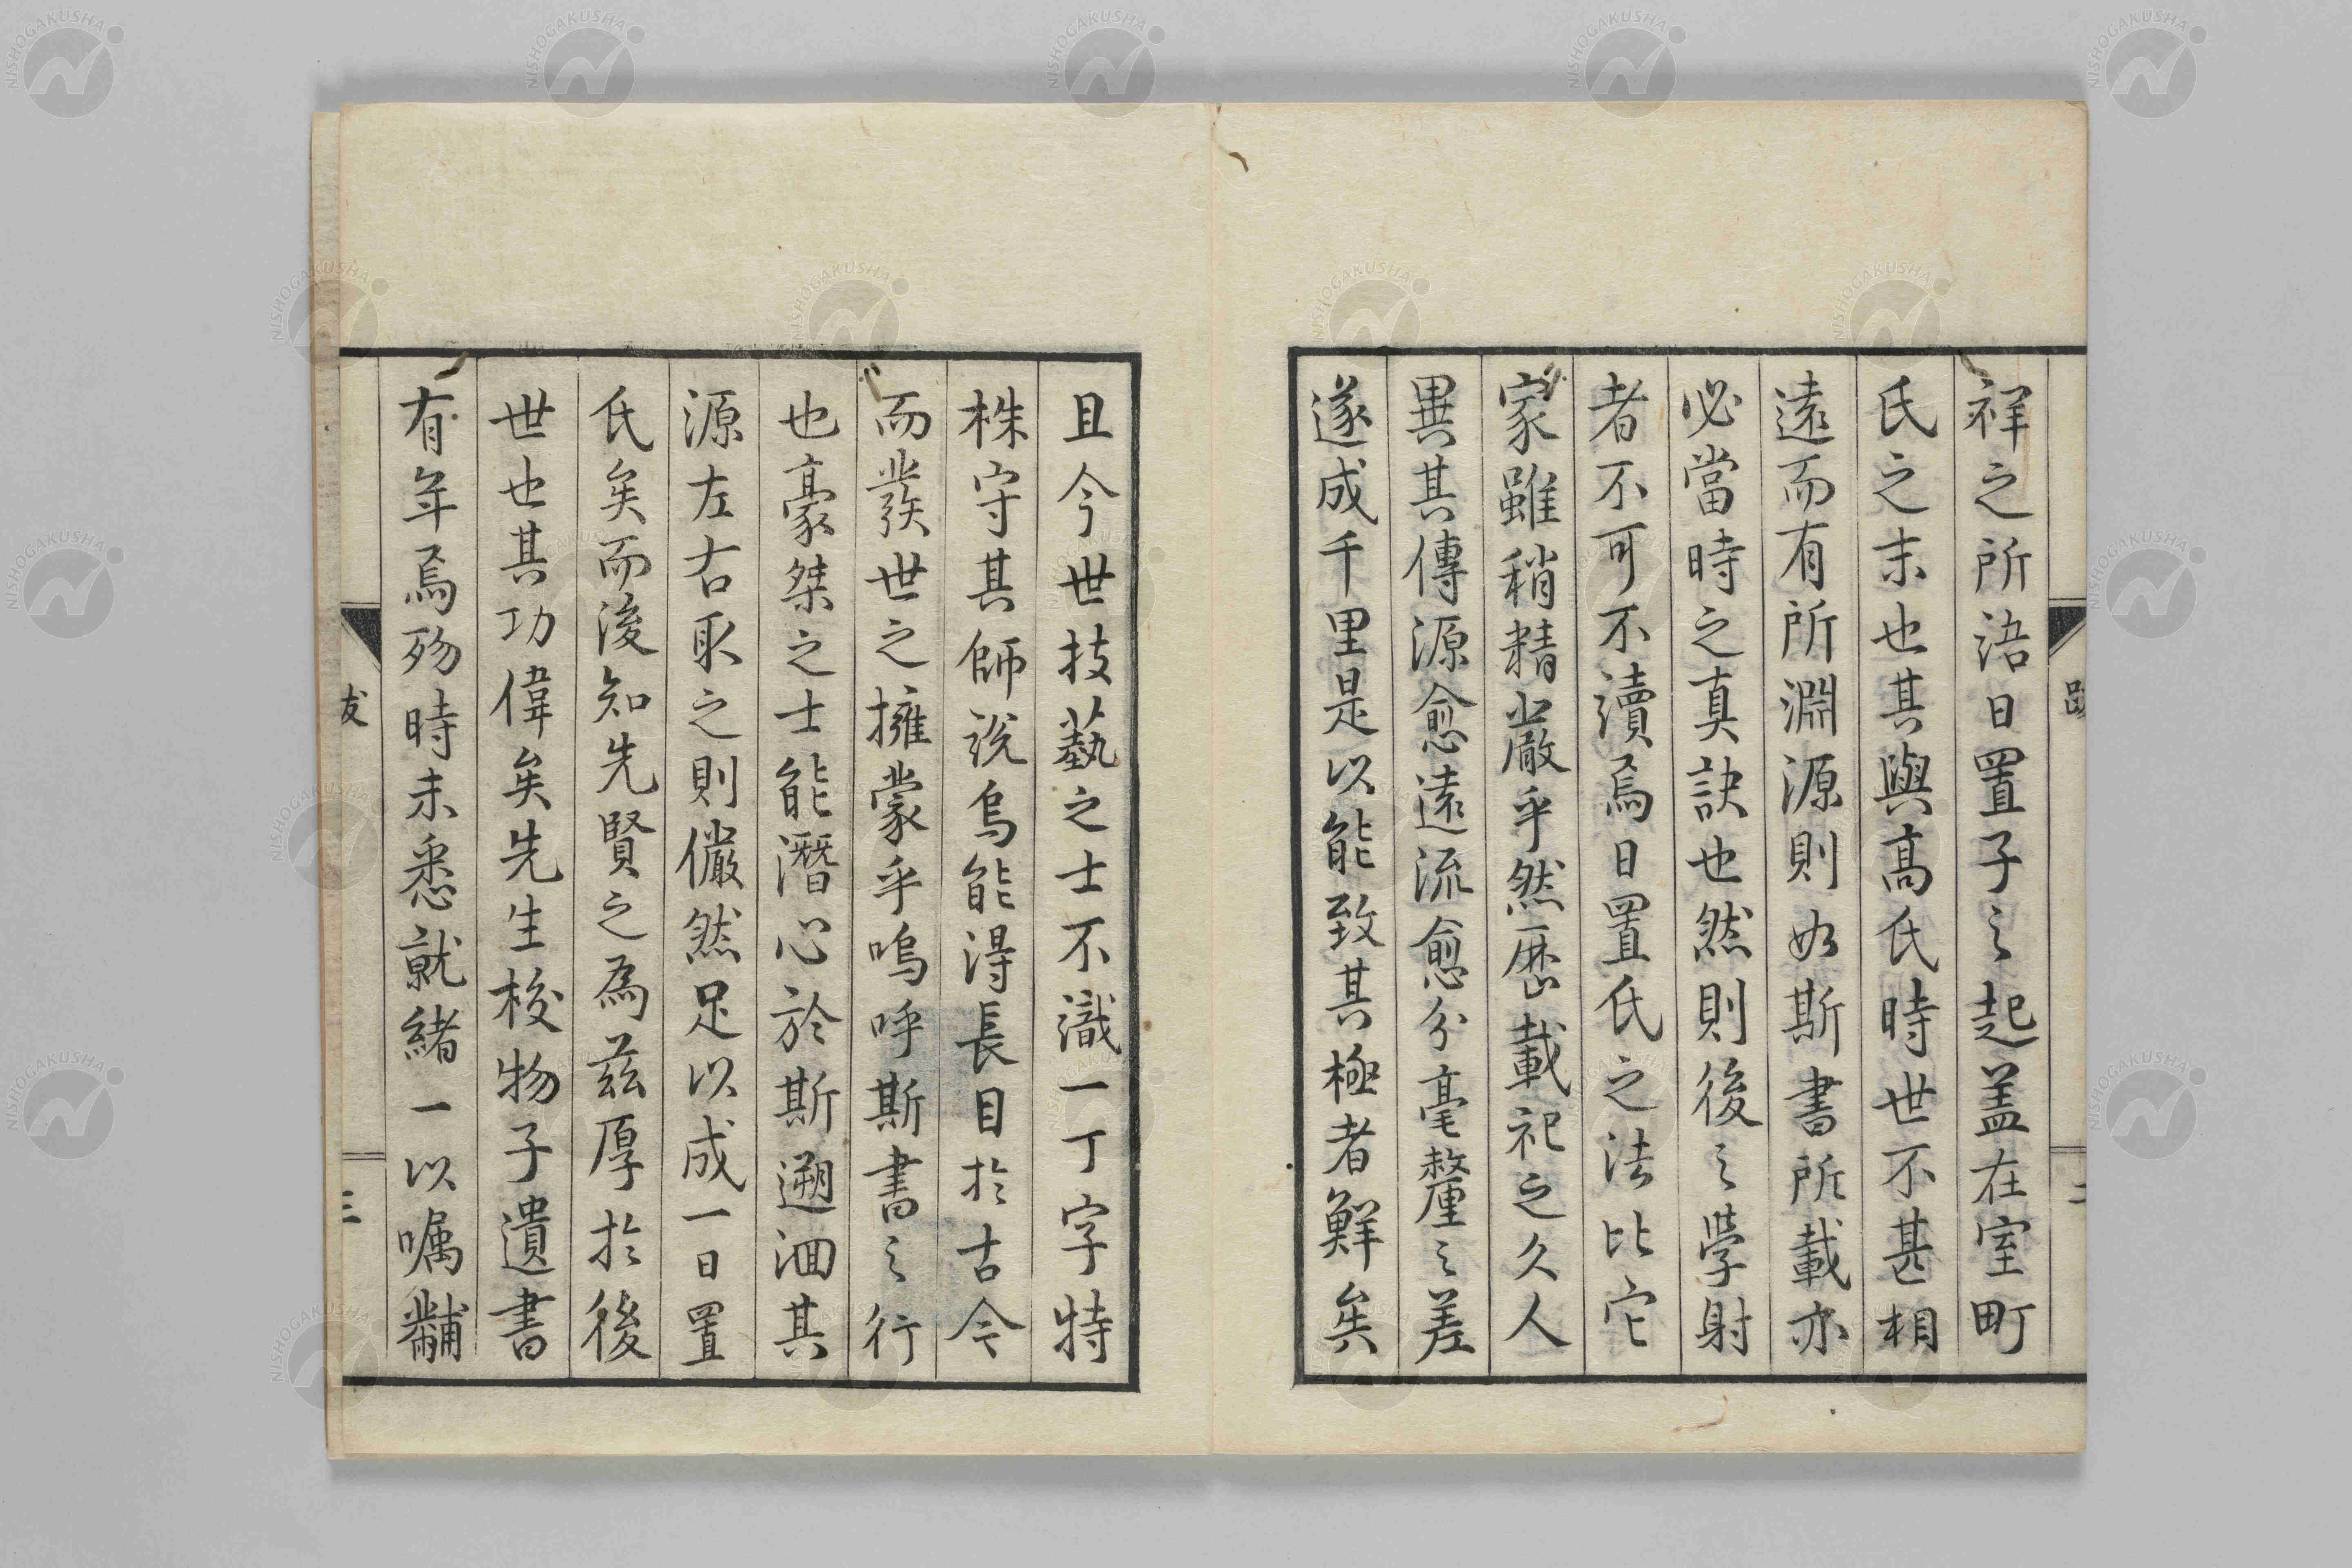 祥之所語日置子之起蓋在室町
氏之末也其與高氏時世不甚相
遠而有所淵源則如斯書所載亦
必當時之真訣也然則後之學射
者不可不讀焉日置氏之法比它
家雖稍精嚴乎然歷載祀之久人
異其傳源愈遠流愈分毫釐之差
遂成千里是以能致其極者鮮矣
且今世技藝之士不識一丁字特
株守其師說烏能得長目於古今
而發世之擁蒙乎嗚呼斯書之行
也豪桀之士能潛心於斯遡洄其
源左右取之則儼然足以成一日置
氏矣而後知先賢之為茲厚於後
世也其功偉矣先生校物子遺書
有年焉歿時未悉就緒一以囑黼
三
NISHOGAKUSHA